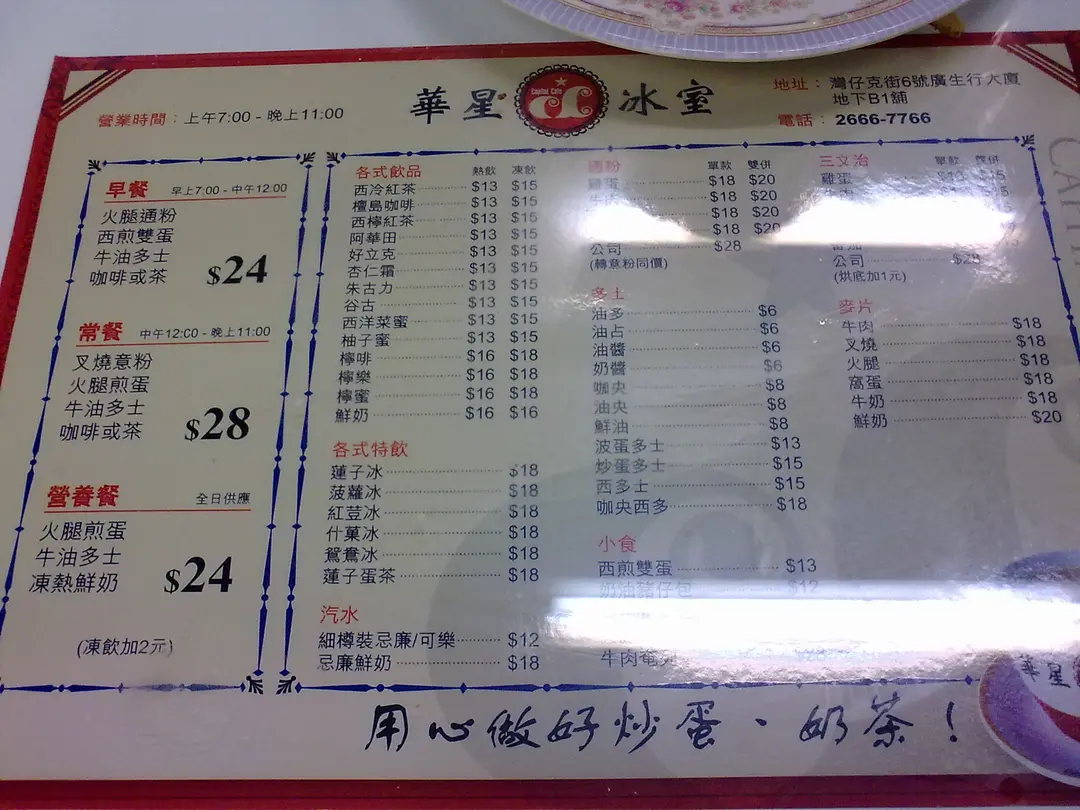 營業時間：上午7:00 - 晚上11:00
華星冰室
Capital Cafe
地址：灣仔克街6號廣生行大廈
地下B1舖
電話：2666-7766
早餐 早上7:00 - 中午12:00
火腿通粉
西煎雙蛋
牛油多士
咖啡或茶 $24
常餐 中午12:00 - 晚上11:00
叉燒意粉
火腿煎蛋
牛油多士
咖啡或茶 $28
營養餐 全日供應
火腿煎蛋
牛油多士
凍熱鮮奶 $24
(凍飲加2元)
各式飲品 熱飲 凍飲
西冷紅茶 $13 $15
檀島咖啡 $13 $15
西檸紅茶 $13 $15
阿華田 $13 $15
好立克 $13 $15
杏仁霜 $13 $15
朱古力 $13 $15
谷古 $13 $15
西洋菜蜜 $13 $15
柚子蜜 $13 $15
檸啡 $16 $18
檸樂 $16 $18
檸蜜 $16 $18
鮮奶 $16 $16
各式特飲
蓮子冰 $18
菠蘿冰 $18
紅荳冰 $18
什菓冰 $18
鴛鴦冰 $18
蓮子蛋茶 $18
汽水
細樽裝忌廉/可樂 $12
忌廉鮮奶 $18
通粉 單款 雙併
雞蛋 $18 $20
牛肉 $18 $20
$18 $20
$18 $20
公司 $28
(轉意粉同價)
多士
油多 $6
油占 $6
油醬 $6
奶醬 $6
咖央 $8
油央 $8
鮮油 $8
波蛋多士 $13
炒蛋多士 $15
西多士 $15
咖央西多 $18
小食
西煎雙蛋 $13
奶油豬仔包 $12
牛肉奄列
三文治 單款 雙併
雞蛋 $13 $15
公司 $28
(烘底加1元)
麥片
牛肉 $18
叉燒 $18
火腿 $18
窩蛋 $18
牛奶 $18
鮮奶 $20
用心做好炒蛋、奶茶！
華星